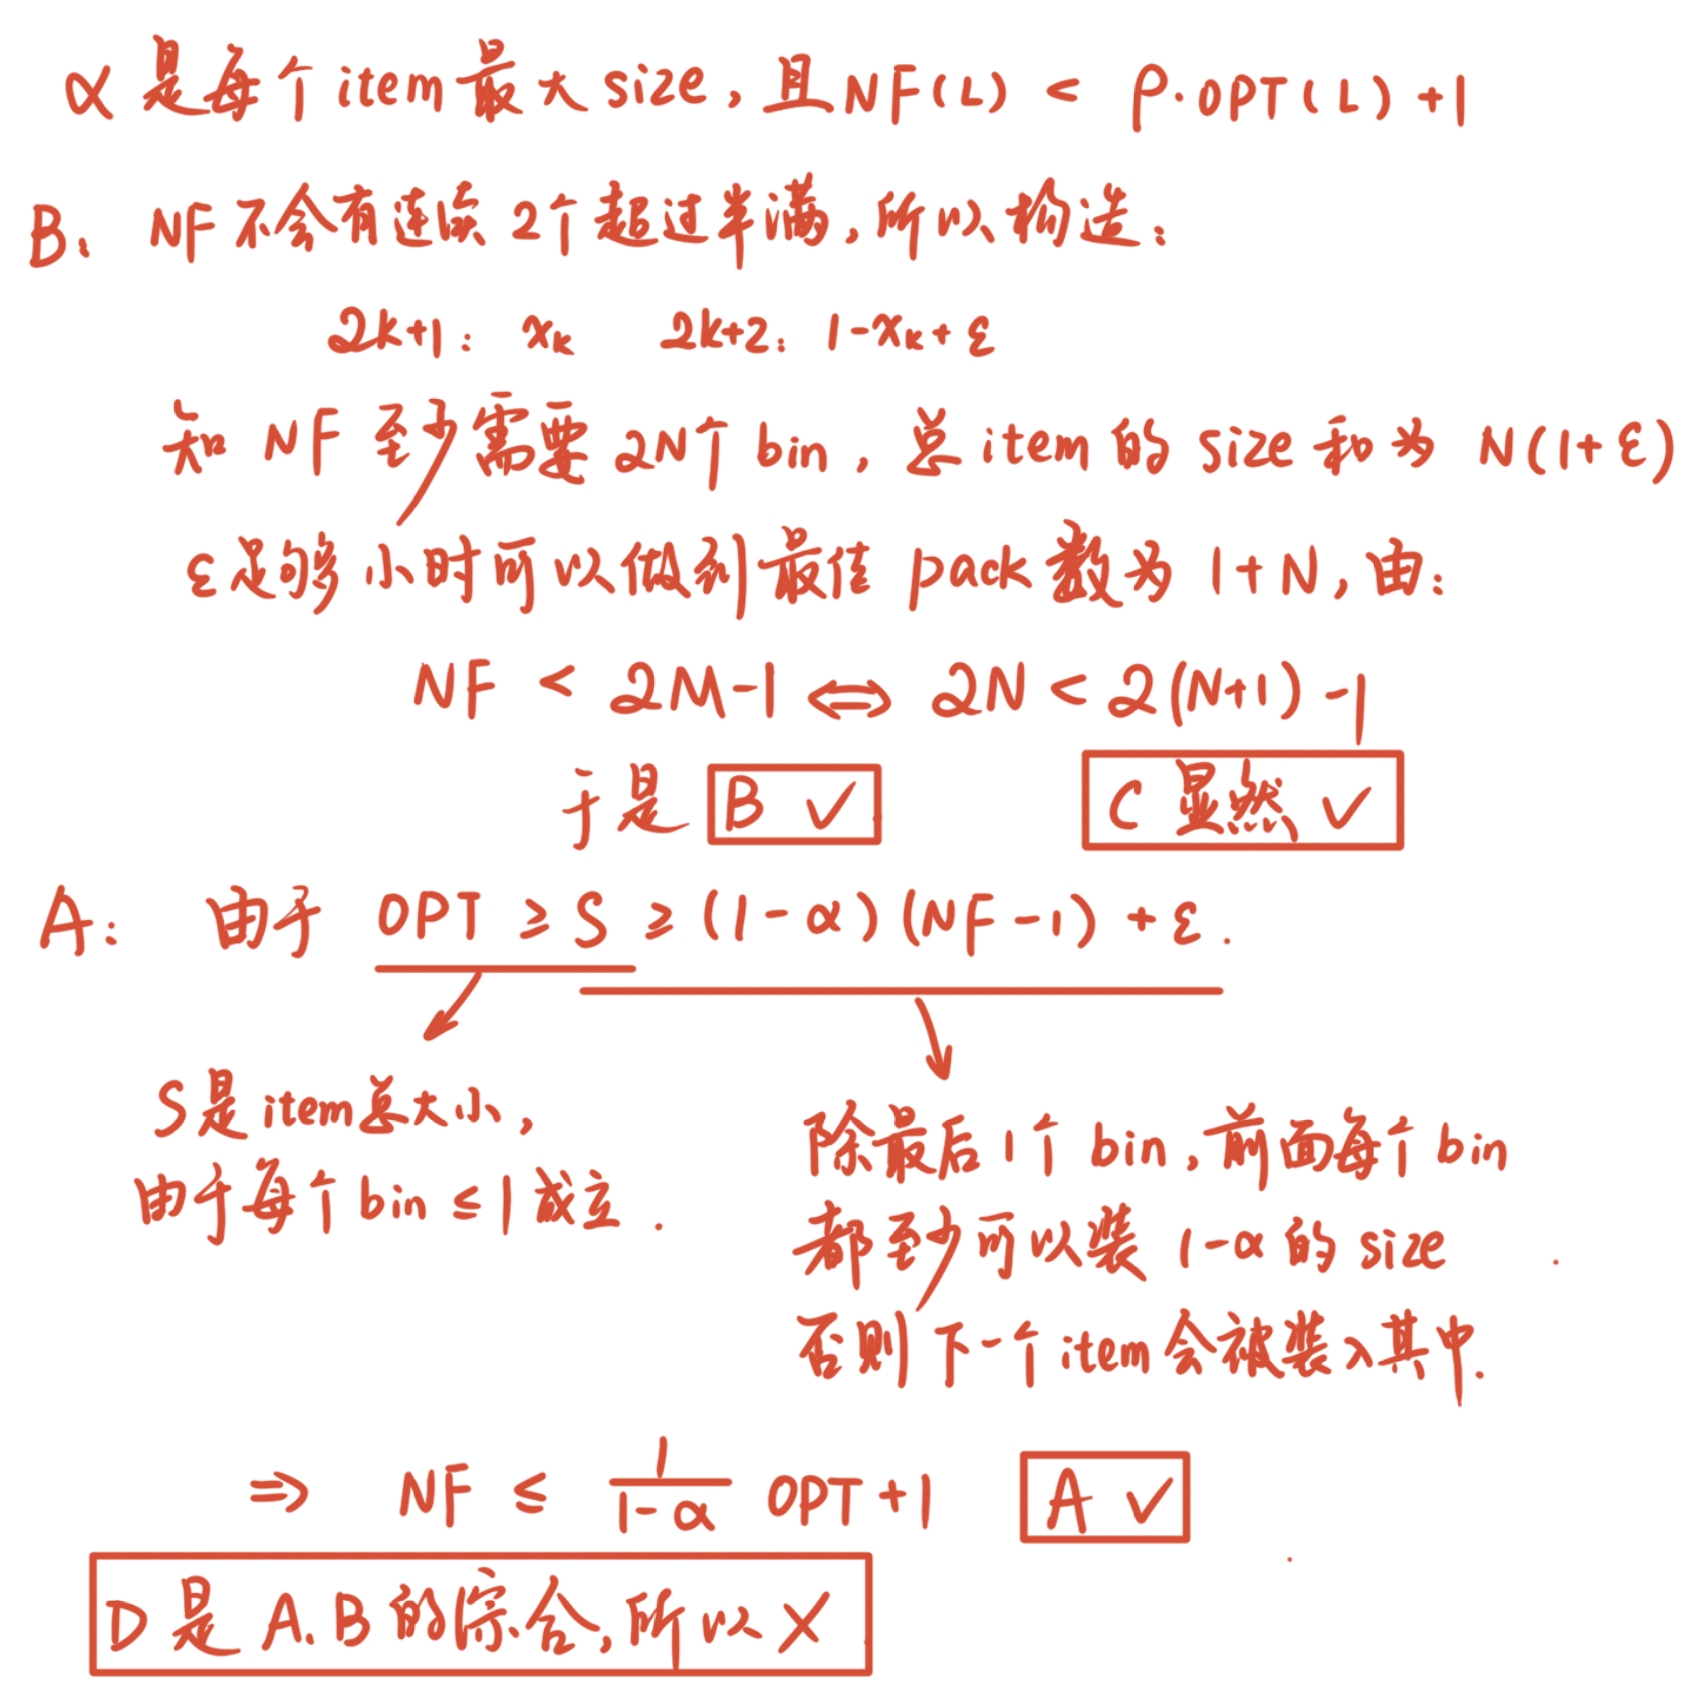 α 是每个 item 最大 size, 且 NF(L) < ρ·OPT(L) +1
B: NF 不会有连续 2个超过半满, 所以构造:
2k+1: xₖ 2k+2: 1-xₖ+ε
知 NF 至少需要 2N个 bin, 总 item 的 size 和为 N(1+ε)
ε足够小时可以做到最佳 pack 数为 1+N, 由:
NF < 2M-1 ⟺ 2N < 2(N+1) -1
于是 B ✓ C 显然 ✓
A: 由于 OPT ≥ S ≥ (1-α)(NF-1) + ε.
S是 item总大小,
由于每个 bin ≤ 1 成立.
除最后 1个 bin, 前面每个 bin
都至少可以装 1-α 的 size
否则下一个 item 会被装入其中.
⇒ NF ≤ 1/(1-α) OPT +1 A ✓
D 是 A.B 的综合, 所以 ✗